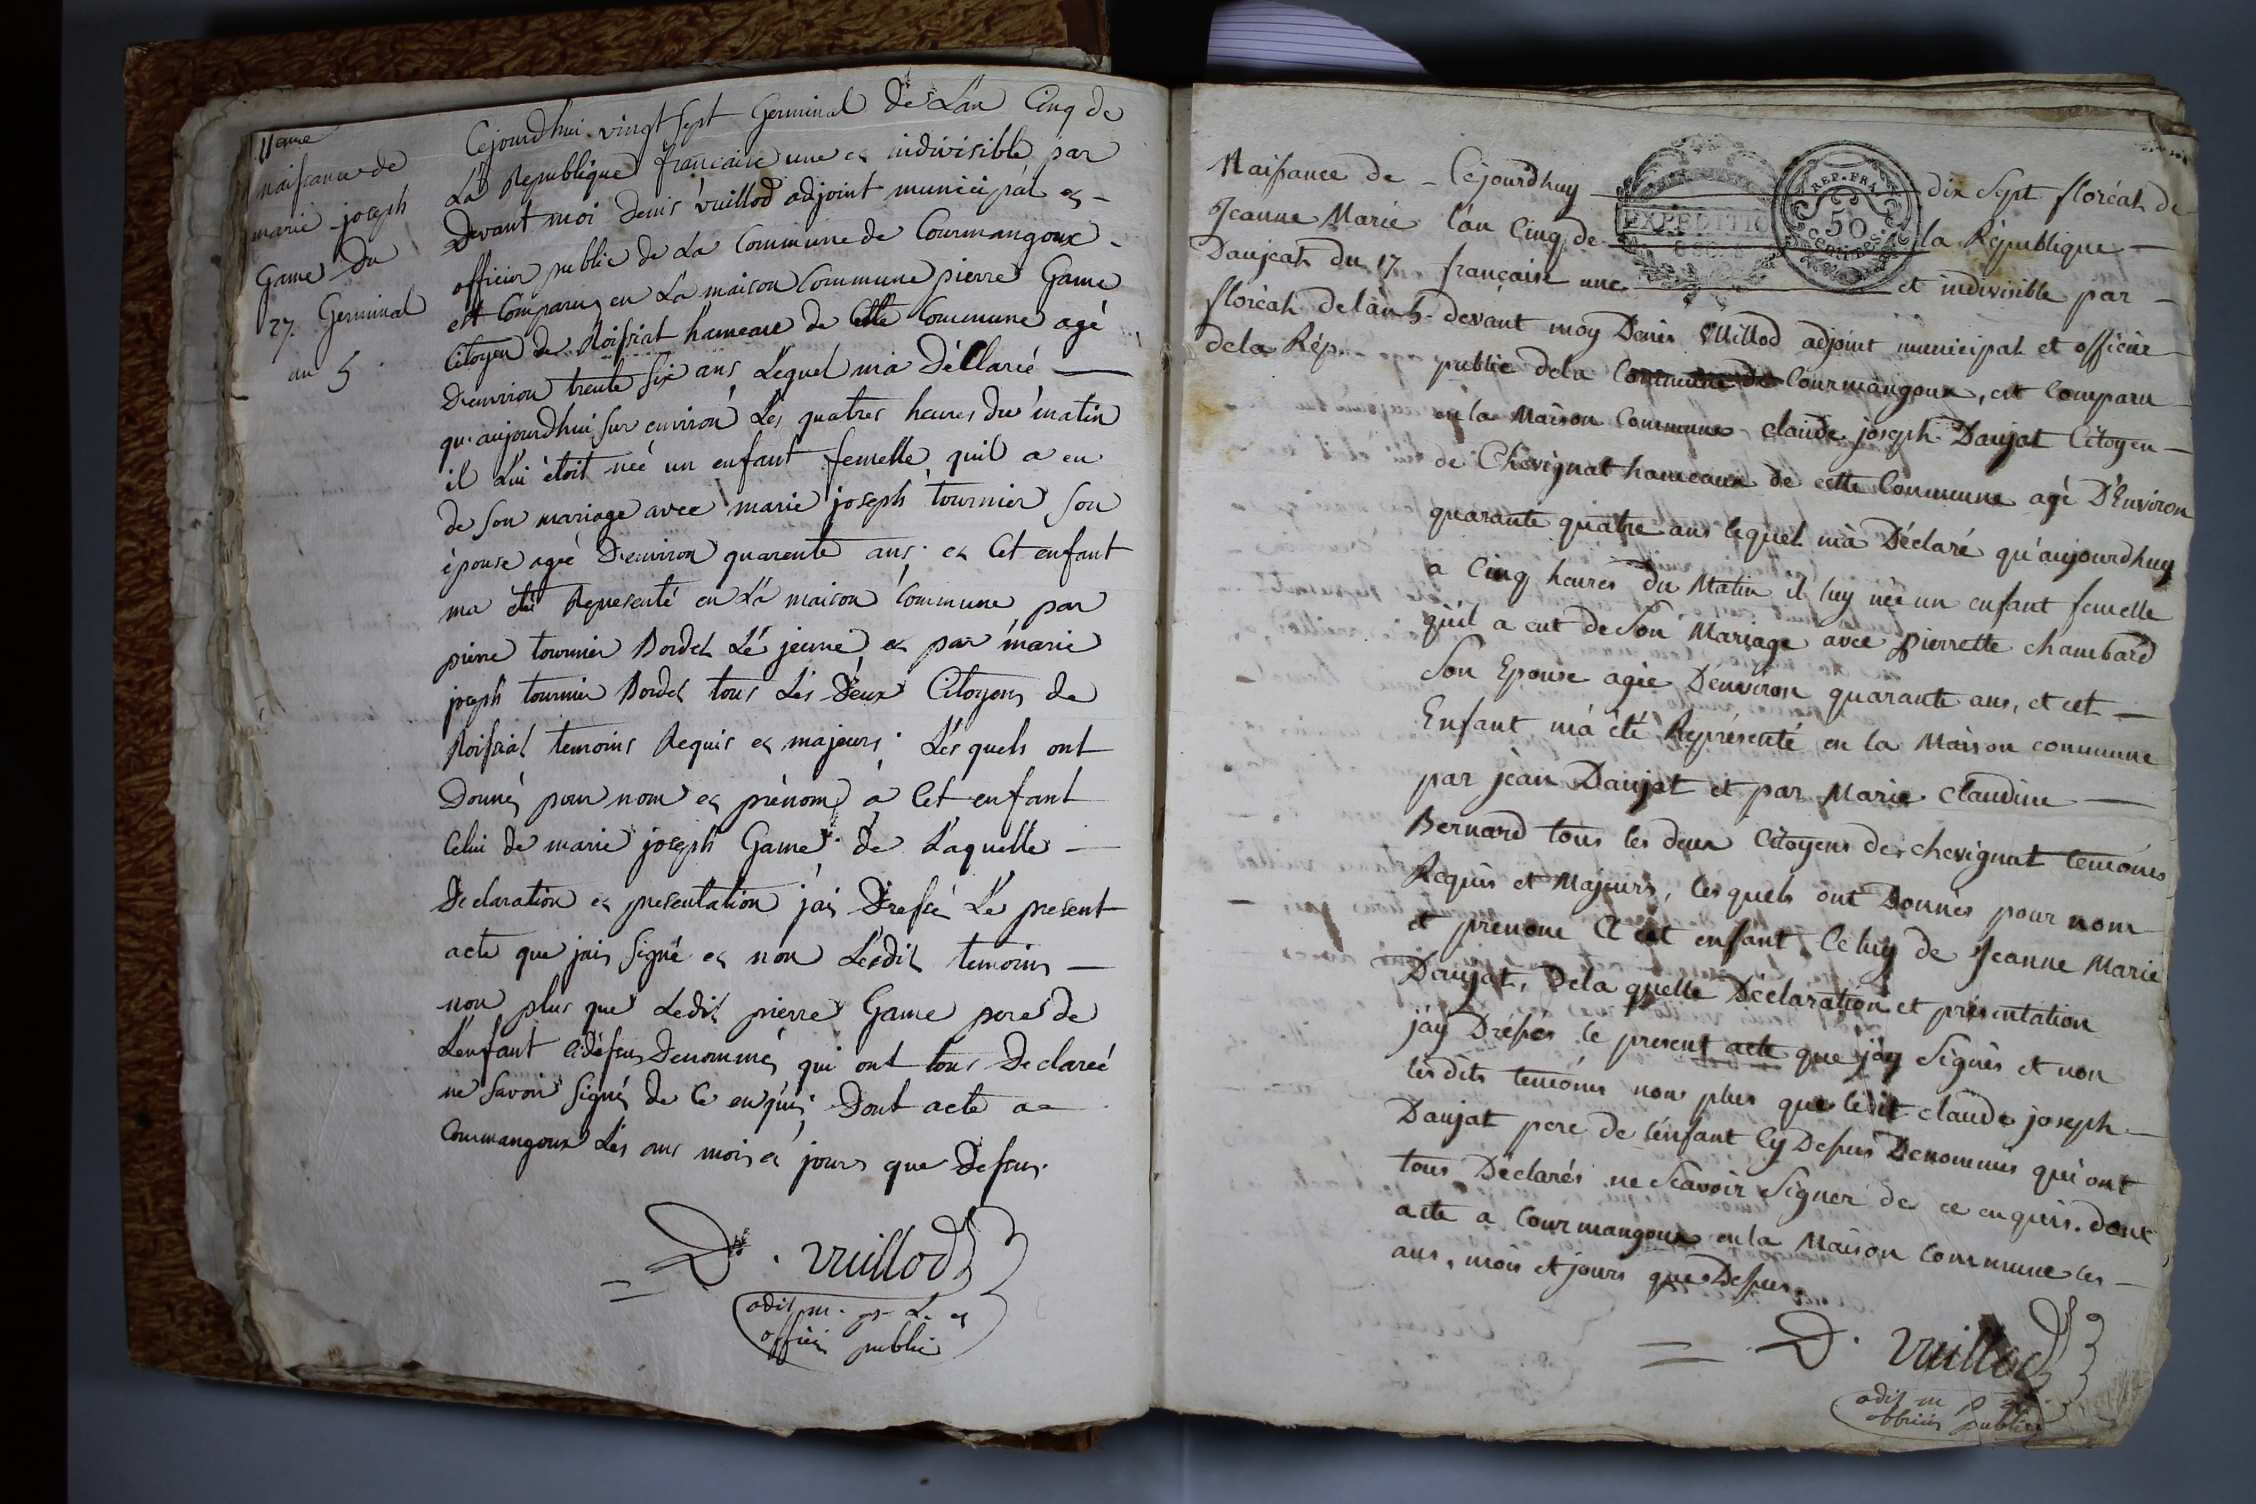 11eme
naissance de
marie joseph
Game du
27. Germinal
an 5
Cejourdhui vingt sept Germinal de L'an Cinq de
La Republique francaise une et indivisible par
Devant moi Denis vuillod adjoint municipal et
officier public de La Commune de Courmangoux
est Comparu en La maison Commune pierre Game
Citoyen de Roissiat hameau de Cette Commune agé
D'environ trente six ans Lequel m'a Déclaré
qu'aujourdhui sur environ Les quatres heures du matin
il Lui étoit née un enfant femelle quil a eu
de son mariage avec marie joseph tournier son
épouse agée D'environ quarente ans; et Cet enfant
ma été Representé en La maison Commune par
pierre tournier Bordet Le jeune et par marie
joseph tournier Bordet tous Les Deux Citoyens de
Roissiat temoins Requis et majeurs; Lesquels ont
Donnés pour nom et prénom à Cet enfant
Celui de marie joseph Game; de Laquelle
Declaration et presentation j'ais Dressé Le present
acte que jais signé et non Lesdit temoins
non plus que Ledit pierre Game pere de
L'enfant Cidessus Denommés qui ont tous Declareé
ne savoir signés de Ce enquis; Dont acte a
Courmangoux Les ans mois et jours que Dessus.
D. vuillod
officier public
Naissance de
Jeanne Marie
Daujeat du 17
floréal de lan 5.
de la Rép.
EXPEDITIO
REP. FRA.
50
CENTIMES
Cejourdhuy dix sept floréal de
l'an Cinq de la République
française une et indivisible par
devant moy Denis Vuillod adjoint municipal et officier
public de la Commune de Courmangoux, est comparu
en la Maison Commune claude joseph Daujat Citoyen
de Chevignat hameaux de cette Commune agé D'Environ
quarante quatre ans lequel m'à Déclaré qu'aujourdhuy
a Cinq heures du Matin il luy née un enfant femelle
qu'il a eut de son Mariage avec pierrette chambard
son Epouse agée D'environ quarante ans, et cet
Enfant m'à été Représenté en la Maison commune
par jean Daujat et par Marie claudine
Bernard tous les deux Citoyens de chevignat temoins
Requis et Majeurs, lesquels ont Donnés pour nom
et prenom a cet enfant Celuy de Jeanne Marie
Daujat, De la quelle Déclaration et présentation
j'ay Dréssés le present acte que j'ay signés et non
lesdits temoins non plus que ledit claude joseph
Daujat pere de l'enfant cy Dessus Denommés qui ont
tous Déclarés ne Scavoir signer de ce enquis. dont
acte a Courmangoux en la Maison Commune les
ans, mois et jours que Dessus.
D. vuillod
officier public